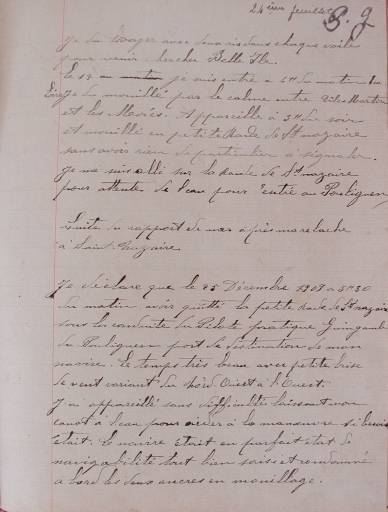 24 ième feuillet
g
je fis lovoyer avec deux ris dans chaque voile
pour venir chercher Belle Ile.
le 19 je suis entré à du matin
Loire je mouillé par le calme entre Ville Martin
et les Morées. Appareillé à 3h du soir
et mouillé en petite Rade de St nazaire
sans avoir rien de particulier à signaler.
je me suis allé sur la Rade de St nazaire
pour attente de l'eau pour entré au Pouliguen
Suite du rapport de mer après ma relache
à Saint-Nazaire
Je déclare que le 25 Décembre 1909 à 5h30
du matin avoir quitté la petite Rade de St nazaire
sous la conduite du Pilote pratique Guingamb
du Pouliguen port de destination de mon
navire. le temps très beau avec petite brise
de vent variant du Nord Ouest à l'Ouest.
J'ai appareillé sans difficulté laissant mon
canot à l'eau pour aider à la manœuvre si besoin
était. le navire était en parfait état de
navigabilité tout bien saisi et condamné
à bord les deux ancres en mouillage.